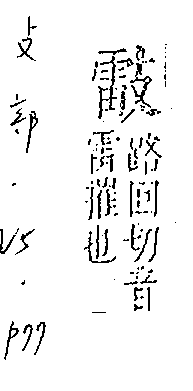 路回切音
雷摧也
攴部.V5.p77